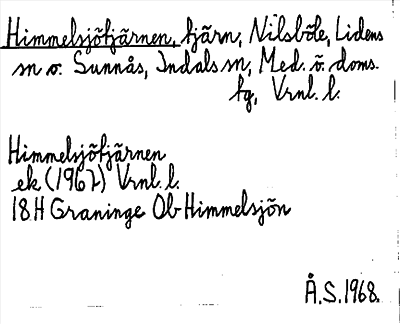 Himmelsjötjärnen, tjärn, Nilsböle, Lidens
sn o. Sunnås, Indals sn, Med. ö. doms.
tg, Vrnl. l.
Himmelsjötjärnen
ek (1967) Vrnl. l.
18H Graninge Ob Himmelsjön
Å.S. 1968.